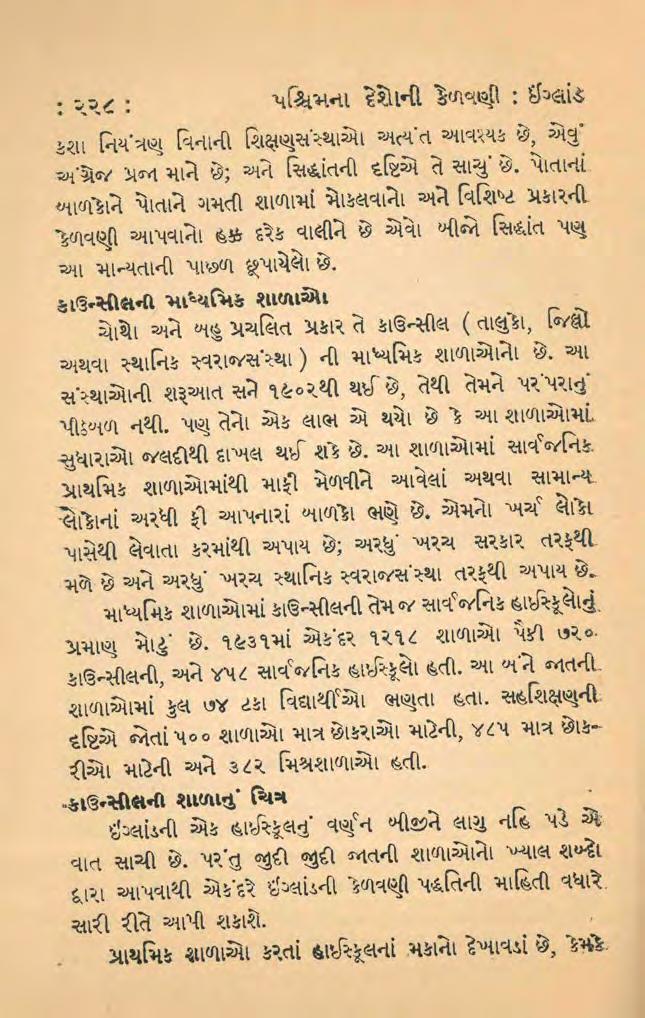 : ૨૨૮ : પશ્ચિમના દેશોની કેળવણી : ઈંગ્લાંડ
કશા નિયંત્રણ વિનાની શિક્ષણસંસ્થાઓ અત્યંત આવશ્યક છે, એવું
અંગ્રેજ પ્રજા માને છે; અને સિદ્ધાંતની દૃષ્ટિએ તે સાચું છે. પોતાનાં
બાળકોને પોતાને ગમતી શાળામાં મોકલવાનો અને વિશિષ્ટ પ્રકારની
કેળવણી આપવાનો હક્ક દરેક વાલીને છે એવો બીજો સિદ્ધાંત પણ
આ માન્યતાની પાછળ છૂપાયેલો છે.
કાઉન્સીલની માધ્યમિક શાળાઓ
ચોથો અને બહુ પ્રચલિત પ્રકાર તે કાઉન્સીલ ( તાલુકા, જિલ્લા
અથવા સ્થાનિક સ્વરાજસંસ્થા ) ની માધ્યમિક શાળાઓનો છે. આ
સંસ્થાઓની શરૂઆત સને ૧૯૦૨થી થઈ છે, તેથી તેમને પરંપરાનું
પીઠબળ નથી. પણ તેનો એક લાભ એ થયો છે કે આ શાળાઓમાં
સુધારાઓ જલદીથી દાખલ થઈ શકે છે. આ શાળાઓમાં સાર્વજનિક
પ્રાથમિક શાળાઓમાંથી માફી મેળવીને આવેલાં અથવા સામાન્ય
લોકોનાં અરધી ફી આપનારાં બાળકો ભણે છે. એમનો ખર્ચ લોકો
પાસેથી લેવાતા કરમાંથી અપાય છે; અરધું ખરચ સરકાર તરફથી
મળે છે અને અરધું ખરચ સ્થાનિક સ્વરાજસંસ્થા તરફથી અપાય છે.
માધ્યમિક શાળાઓમાં કાઉન્સીલની તેમ જ સાર્વજનિક હાઈસ્કૂલોનું
પ્રમાણ મોટું છે. ૧૯૩૧માં એકંદર ૧૨૧૮ શાળાઓ પૈકી ૭૨૦
કાઉન્સીલની, અને ૪૫૮ સાર્વજનિક હાઈસ્કૂલો હતી. આ બંને જાતની
શાળાઓમાં કુલ ૭૪ ટકા વિદ્યાર્થીઓ ભણતા હતા. સહશિક્ષણની
દૃષ્ટિએ જોતાં ૫૦૦ શાળાઓ માત્ર છોકરાઓ માટેની, ૪૮૫ માત્ર છોક-
રીઓ માટેની અને ૩૮૨ મિશ્રશાળાઓ હતી.
કાઉન્સીલની શાળાનું ચિત્ર
ઇંગ્લાંડની એક હાઈસ્કૂલનું વર્ણન બીજીને લાગુ નહિ પડે એ
વાત સાચી છે. પરંતુ જુદી જુદી જાતની શાળાઓનો ખ્યાલ શબ્દો
દ્વારા આપવાથી એકંદરે ઇંગ્લાંડની કેળવણી પદ્ધતિની માહિતી વધારે
સારી રીતે આપી શકાશે.
પ્રાથમિક શાળાઓ કરતાં હાઈસ્કૂલનાં મકાનો દેખાવડાં છે, કેમકે